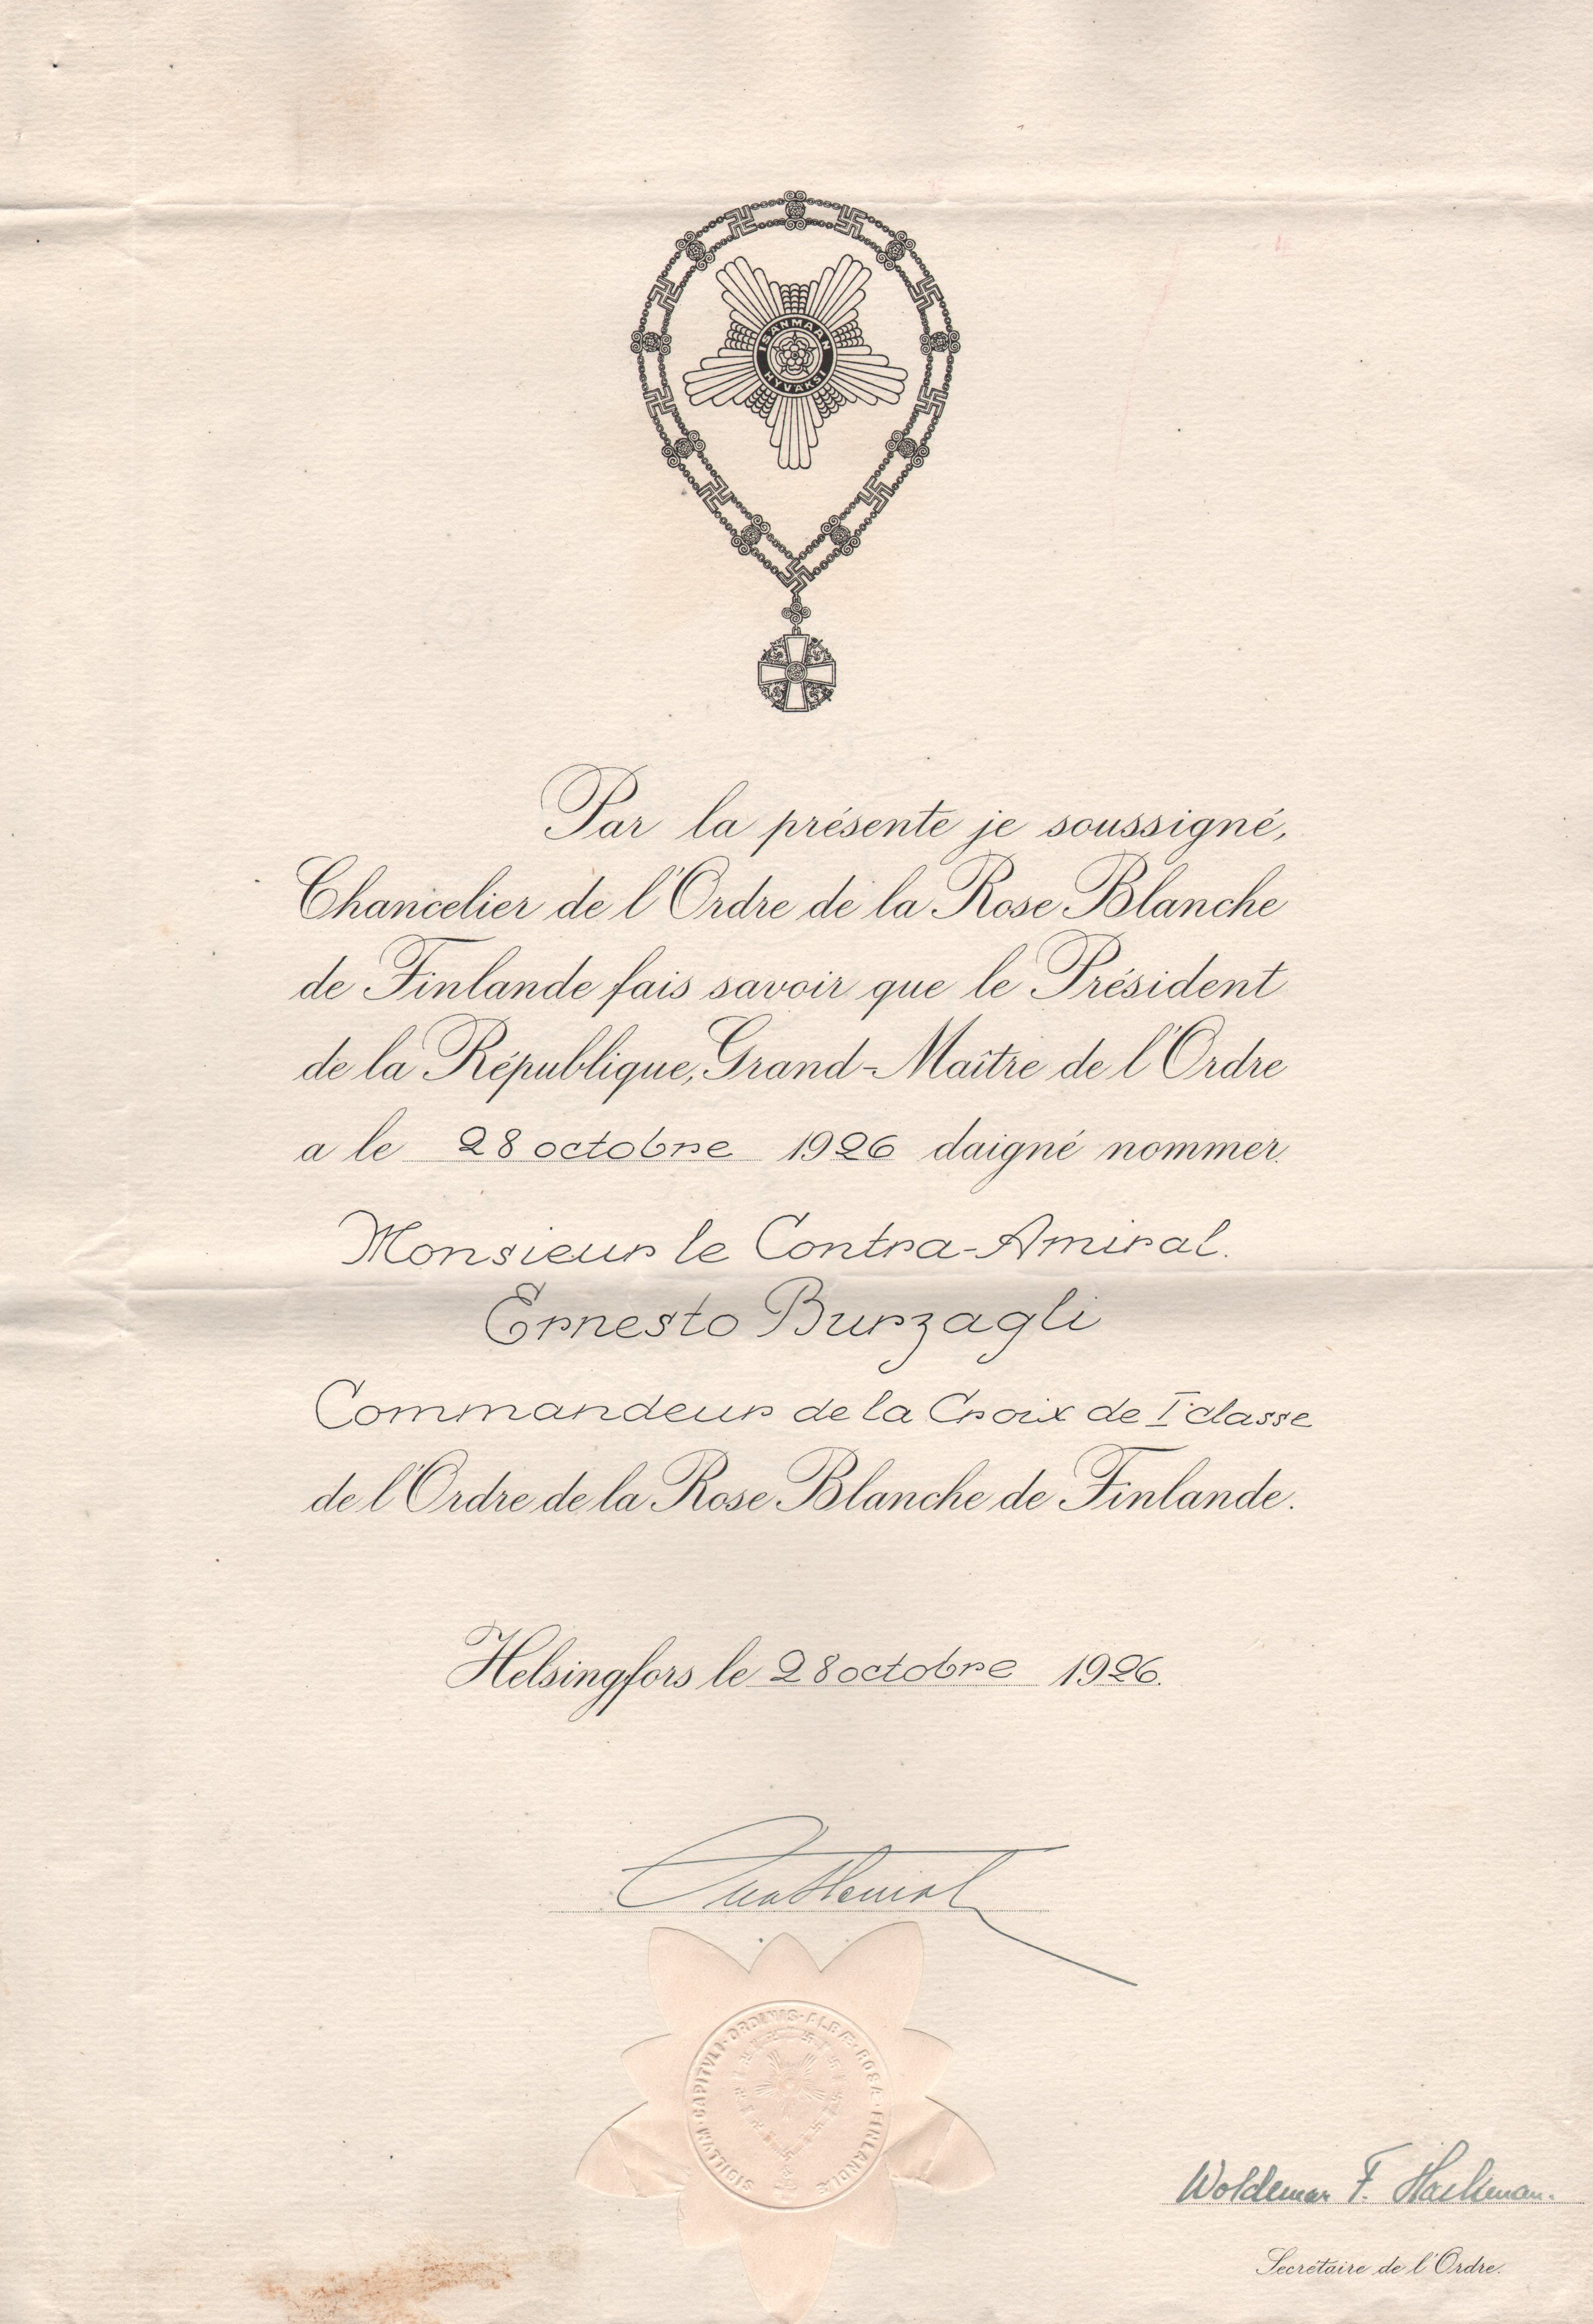 ISÄNMAAN
HYVÄKSI
Par la présente je soussigné,
Chancelier de l'Ordre de la Rose Blanche
de Finlande fais savoir que le Président
de la République, Grand-Maître de l'Ordre
a le 28 octobre 1926 daigné nommer
Monsieur le Contra-Amiral.
Ernesto Burzagli
Commandeur de la Croix de I classe
de l'Ordre de la Rose Blanche de Finlande.
Helsingfors le 28 octobre 1926.
SIGILLVM · CAPITVLI · ORDINIS · ALBÆ · ROSÆ · FINLANDIÆ
Woldemar F. Hackman.
Secrétaire de l'Ordre.